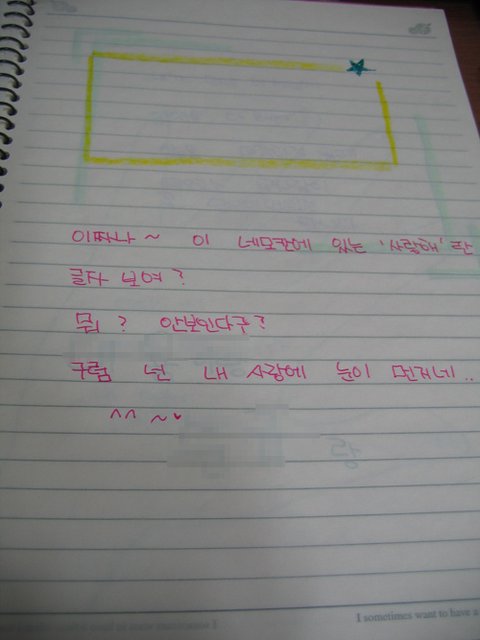 이짜나~ 이 네모칸에 있는 '사랑해'란
글자 보여?
뭡? 안보인다구?
구럼 넌 내 사랑에 눈이 먼거네..
^^ ~♥
I sometimes want to have a